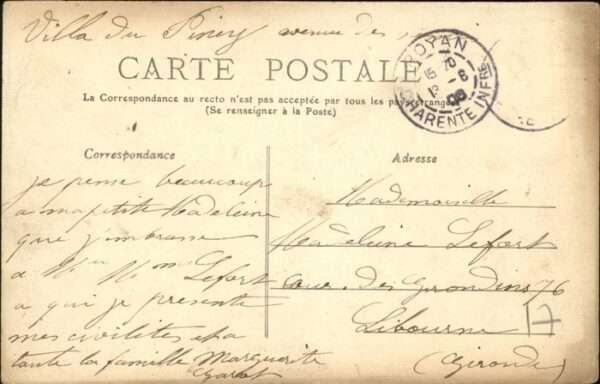 Villa du Piney avenue des
CARTE POSTALE
La Correspondance au recto n'est pas acceptée par tous les pays étrangers
(Se renseigner à la Poste)
ROYAN
15
8 - 6
08
CHARENTE INFRE
Correspondance
je pense beaucoup
a ma petite Madeleine
que j'embrasse
a Mr Mme Lefort
a qui je presente
mes civilites et a
toute la famille Marguerite
Garat
Adresse
Mademoiselle
Madeleine Lefort
cour des Girondins 76
Libourne
(Gironde)